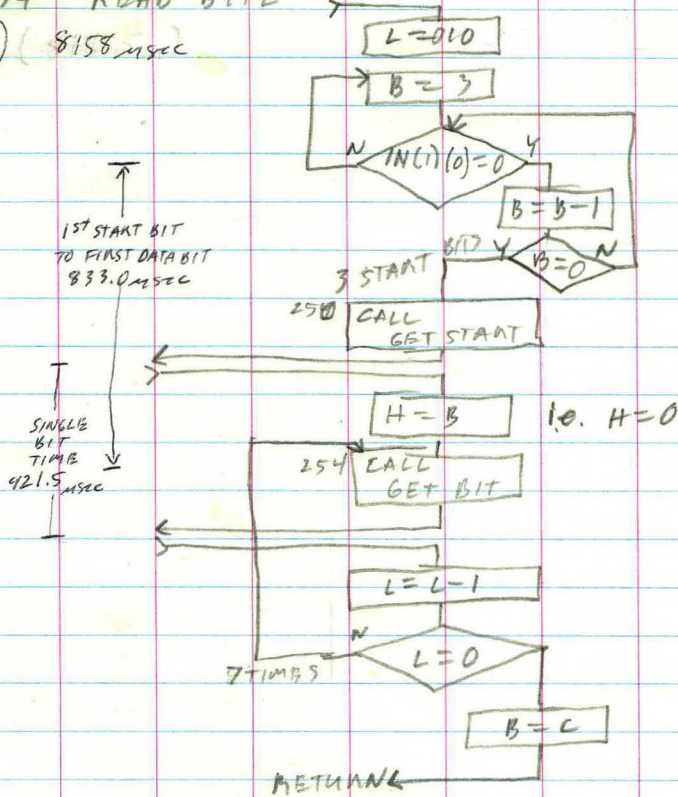 READ BYTE
8158 µsec
L = 010
B = 3
N
IN(1)(0)=0
Y
B = B-1
1st START BIT
TO FIRST DATA BIT
833.0 µsec
3 START
BITS
Y
B=0
N
CALL
GET START
H = B
i.e. H=0
SINGLE
BIT
TIME
921.5 µsec
254
CALL
GET BIT
L = L-1
N
7 TIMES
L = 0
B = C
RETURN